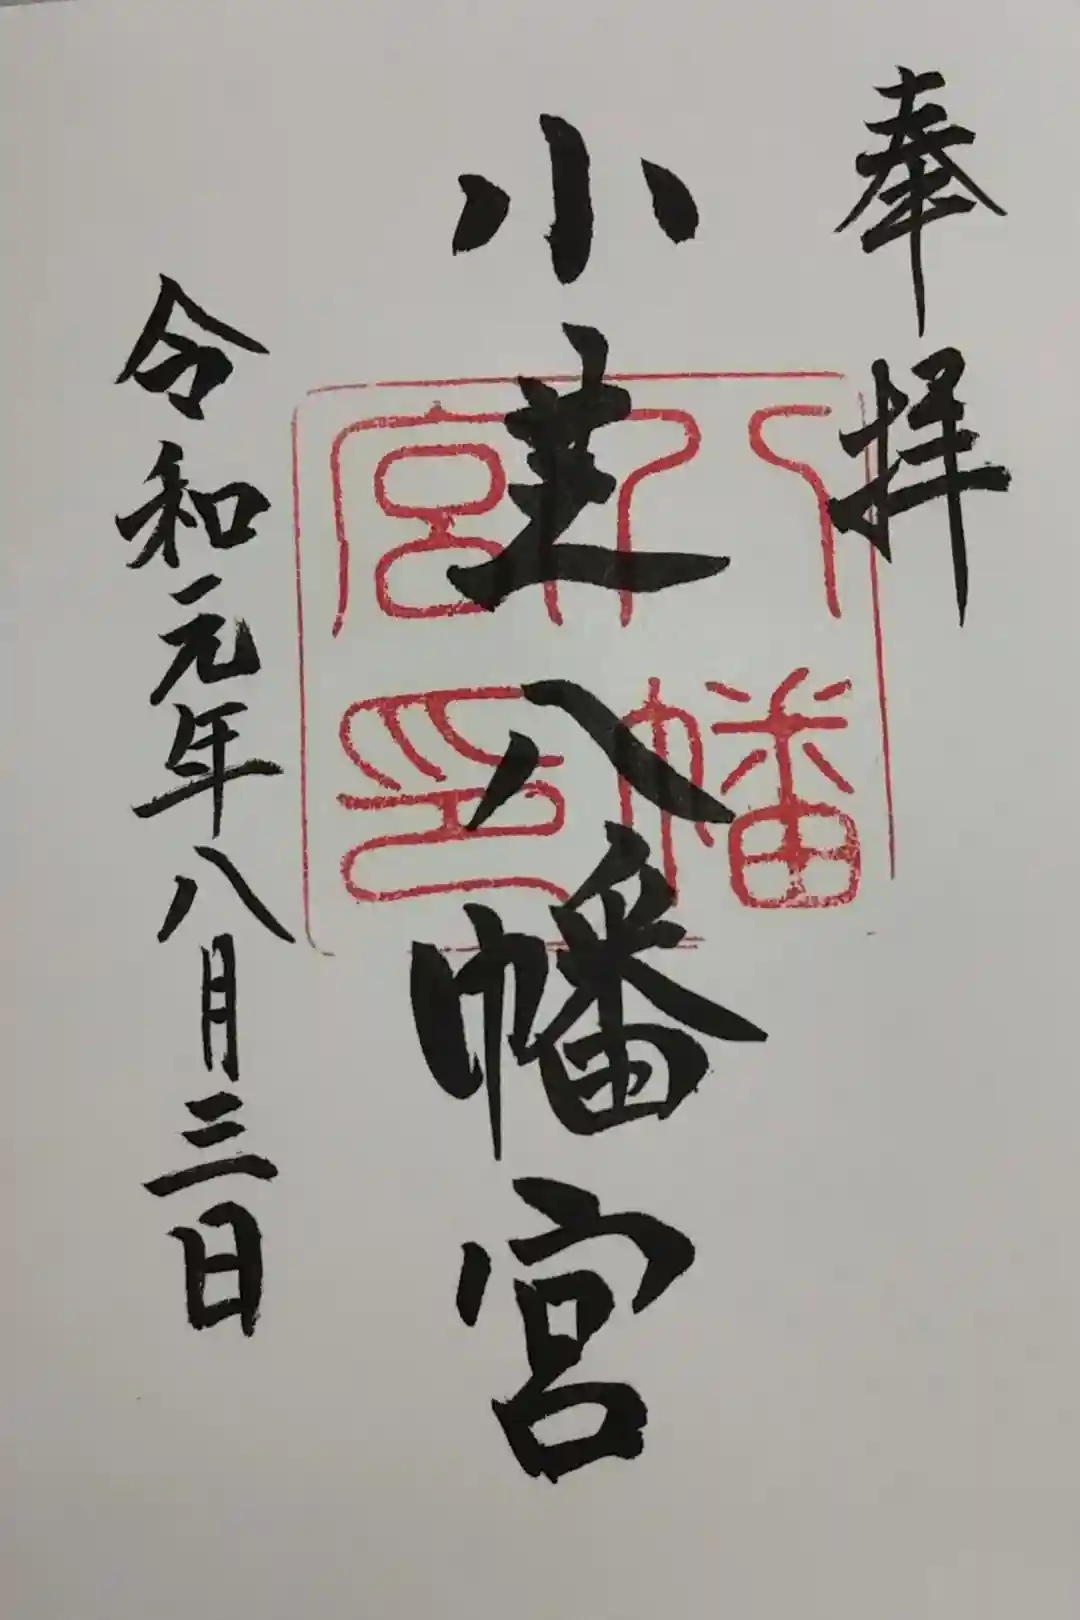 奉拝
小芝八幡宮
令和元年八月三日
八幡
宮印